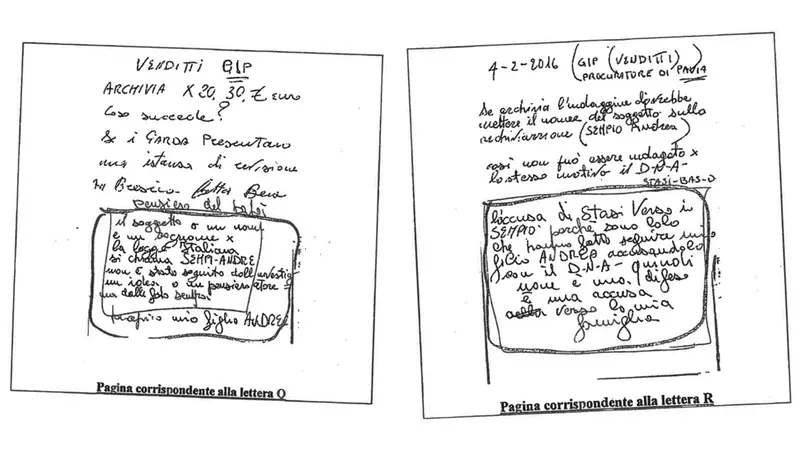 VENDITTI GIP
ARCHIVIA X 20, 30, € euro
Cosa succede?
Se i GARDA Presentano
una istanza di revisione
A Brescia
pensiero del
il soggetto o un nome
e un sognome x
la legge Italiana
si chiama SEMPI-ANDRE
non è stato seguito dall'investig
un idea, o un pensiero
propio mio figlio ANDREA
Pagina corrispondente alla lettera Q
4-2-2016 (GIP (VENDITTI)
(PROCURATORE DI PAVIA
Se archivia l'indagine dovrebbe
mettere il nome del soggetto sulla
(SEMPIO Andrea)
così non può essere indagato x
lo stesso motivo il D-N-A-
STASI-BAS-O
l'accusa di Stasi Verso i
SEMPIO perché sono loro
che hanno fatto seguire mio
figlio ANDREA accusandolo
con il D-N-A- quindi
non è una difesa
è una accusa
verso la mia
famiglia
Pagina corrispondente alla lettera R